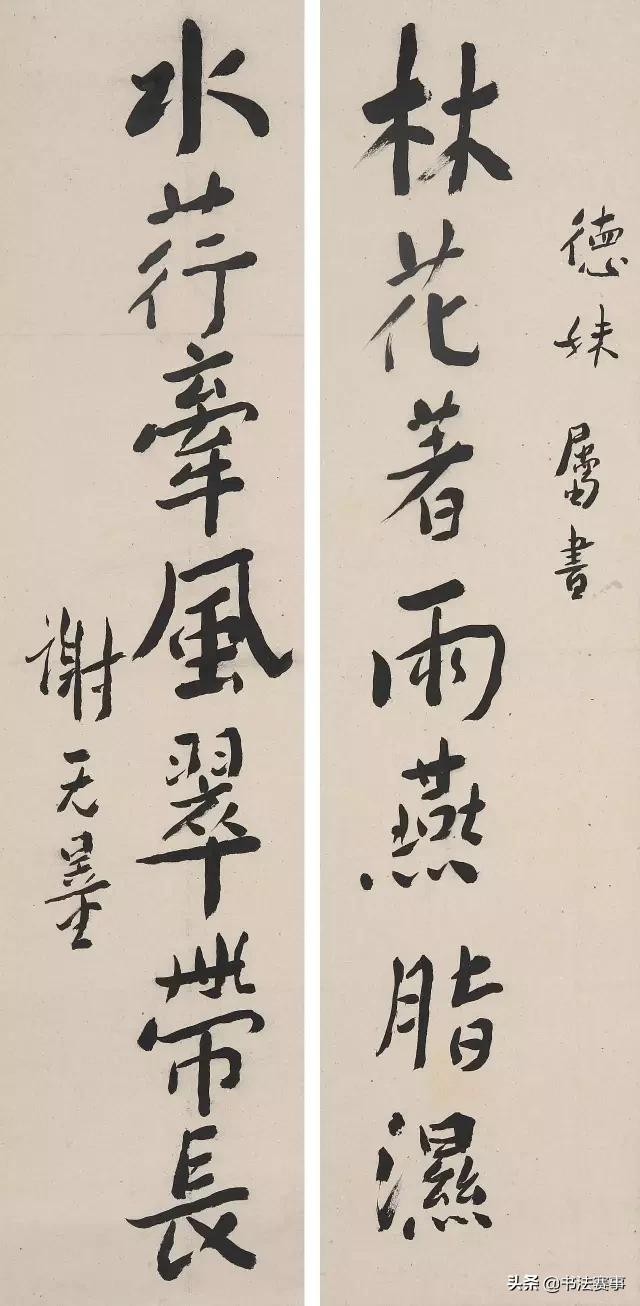 德妹屬書
林花著雨燕脂濕
水荇牽風翠帶長
謝无量
头条 @书法赛事